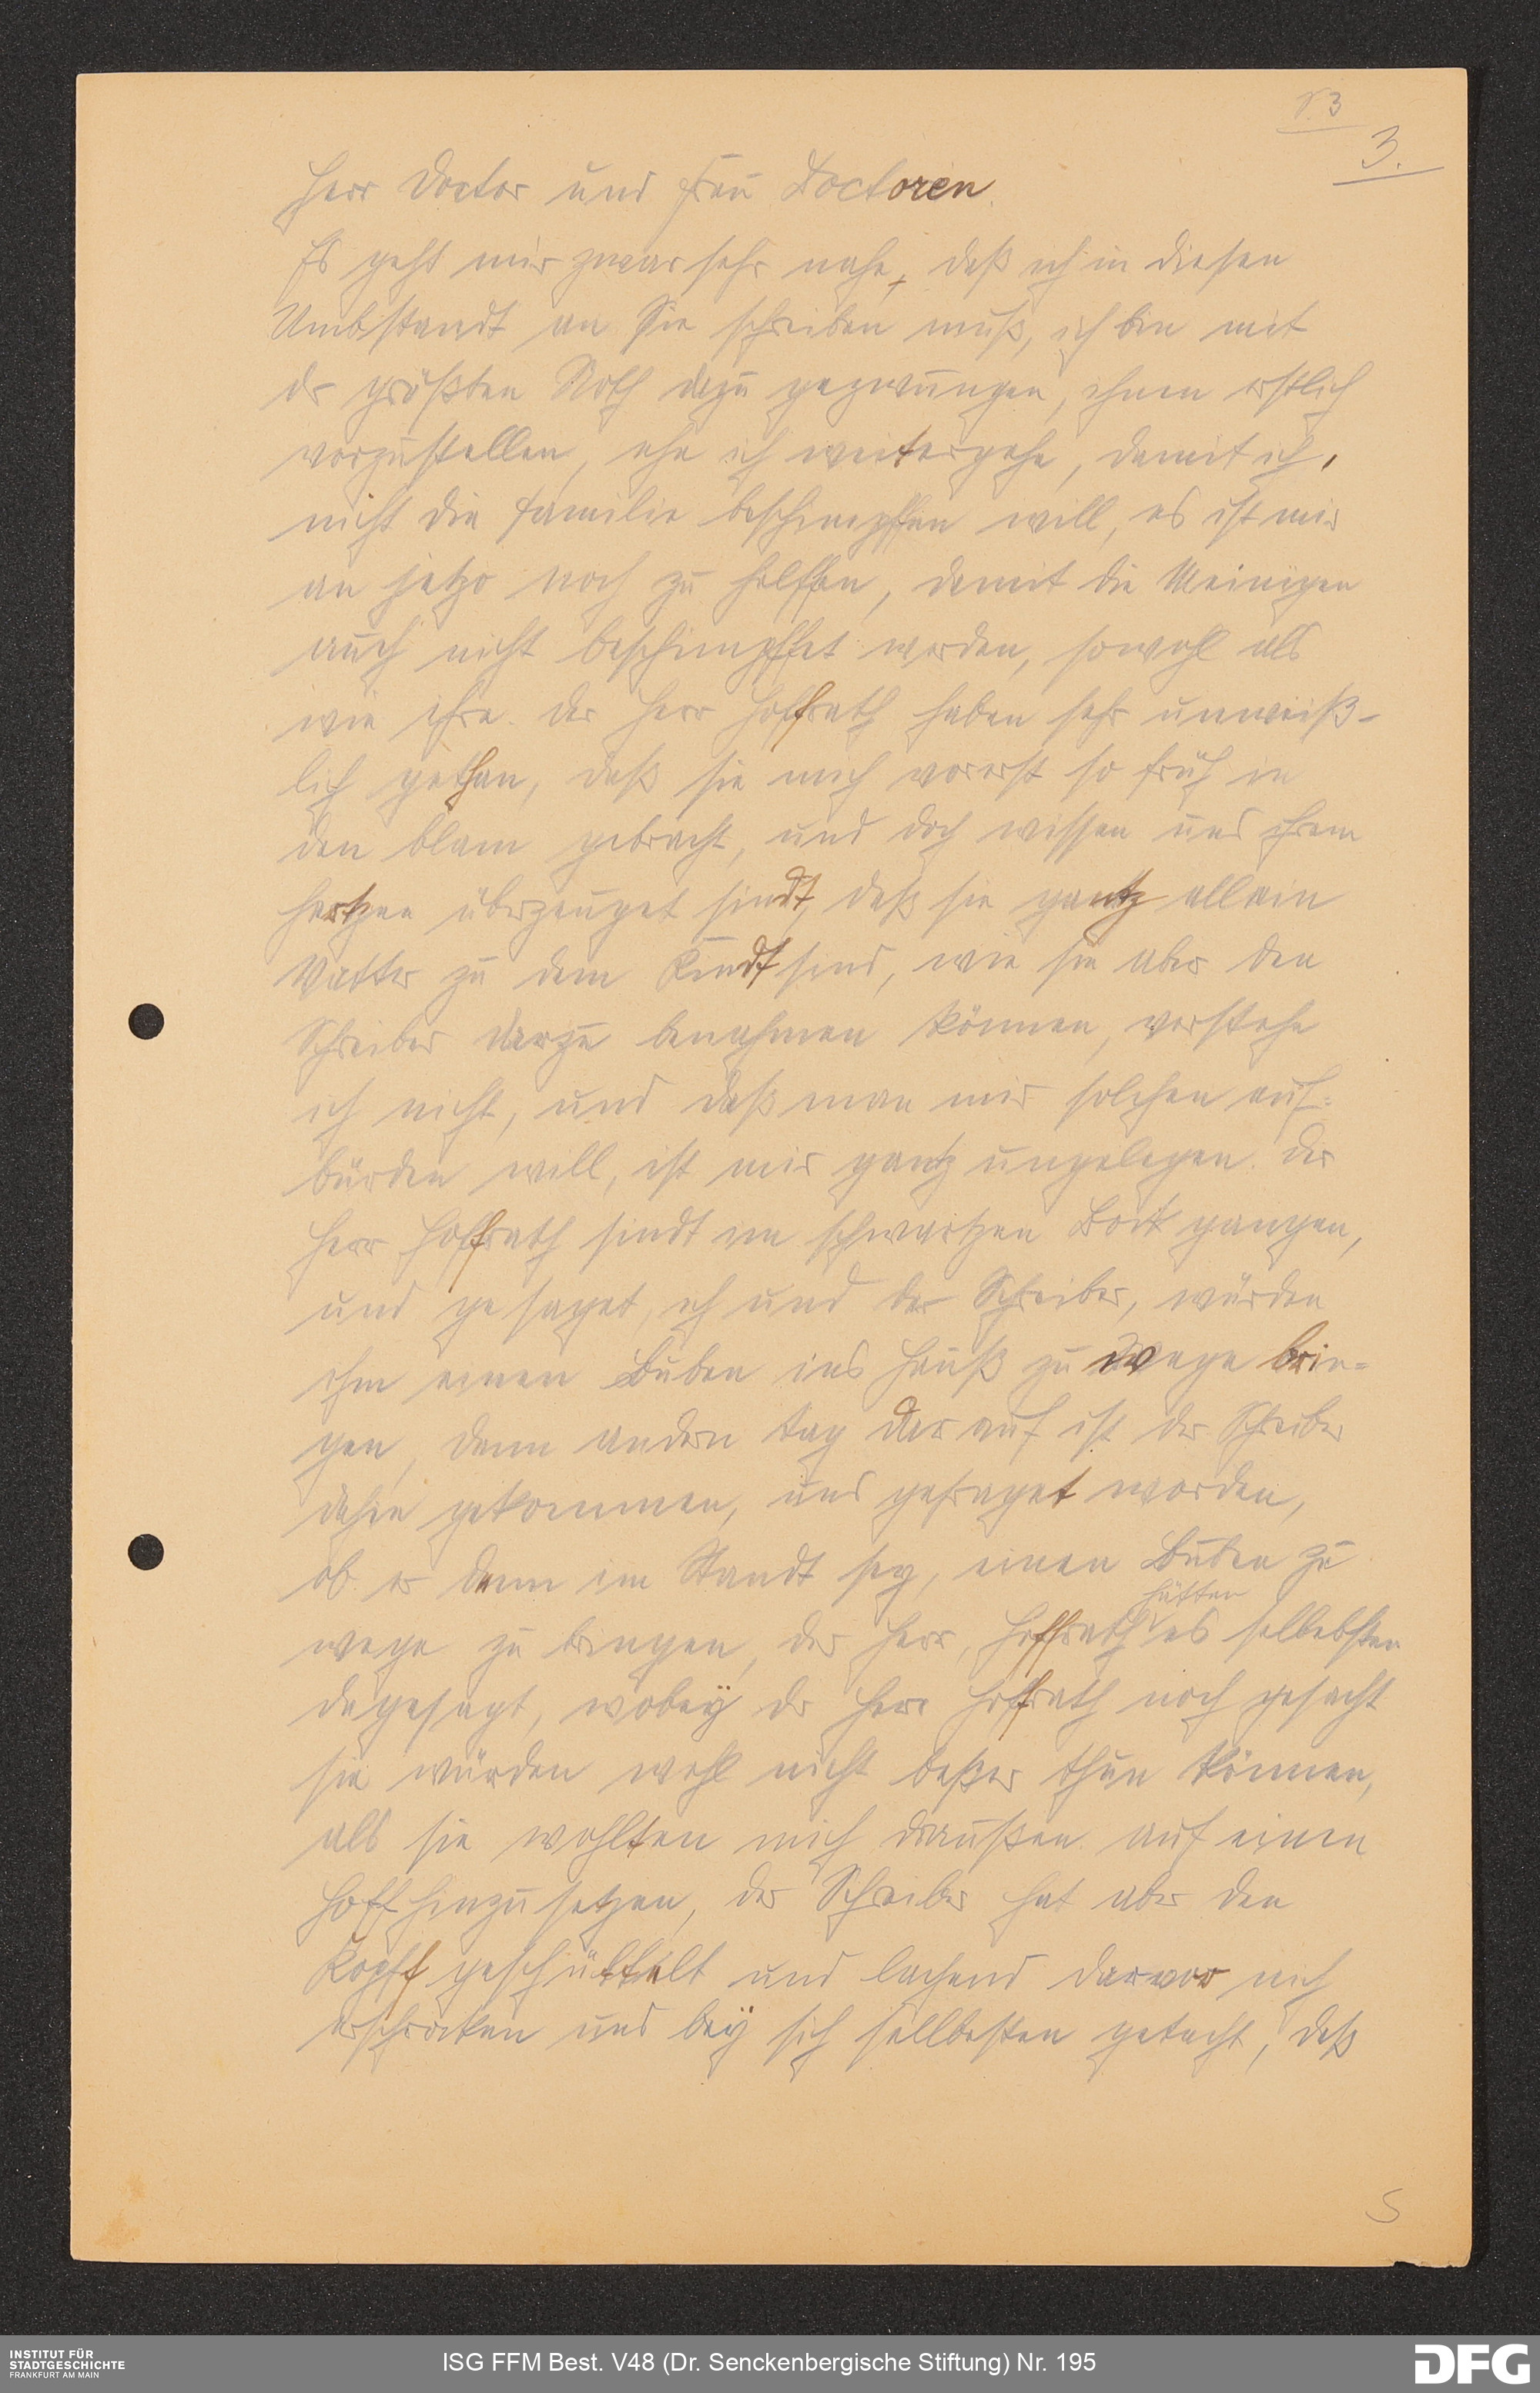 V. 3
3.
Herr Doctor und Frau Doctoren.
Es geht mir zwar sehr nahe, daß ich in diesen
Umbstandt an Sie schreiben muß, ich bin mit
dr größten Noth dazu gezwungen, ihnen erstlich
vorzustellen, ehe ich weitergehe, damit ich,
nicht die Familie beschimpffen will, es ist mir
an jetzo noch zu helffen, damit die Meinigen
auch nicht beschimpffet werden, sowohl als
wie ihre. der Herr Hoffrath haben sehr unweiß-
lich gethan, daß sie mich vorerst so früh in
den blam gebracht, und doch wissen und ihrem
Hertzen überzeuget sindt, daß sie gantz allein
Vatter zu dem Kindt sind, wie sie aber den
Schreiber darzu benahmen können, verstehe
ich nicht, und daß man mir solchen auf-
bürden will, ist mir gantz ungelegen. der
Herr Hoffrath sindt im schwartzen Bock gangen,
und gesaget, ich und der Schreiber, würden
ihm einen Buben ins Hauß zu wege brin=
gen, denn andern tag darauf ist der Schreiber
dahin gekommen, und gefraget worden,
ob er denn im Standt sey, einen Buben zu
hätten
wege zu bringen, der Herr, Hoffrath es sellebsten
dagesagt, wobey dr Herr Hoffrath noch gesacht
sie würden wohl nicht beßer thun können,
als sie wohlten mich draußen auf einen
Hoff hinzusetzen, der Schreiber hat aber den
Kopff geschüttelt und lachend darvor sich
erschrocken und bey sich sellbesten getacht, daß
5
INSTITUT FÜR
STADTGESCHICHTE
FRANKFURT AM MAIN
ISG FFM Best. V48 (Dr. Senckenbergische Stiftung) Nr. 195
DFG